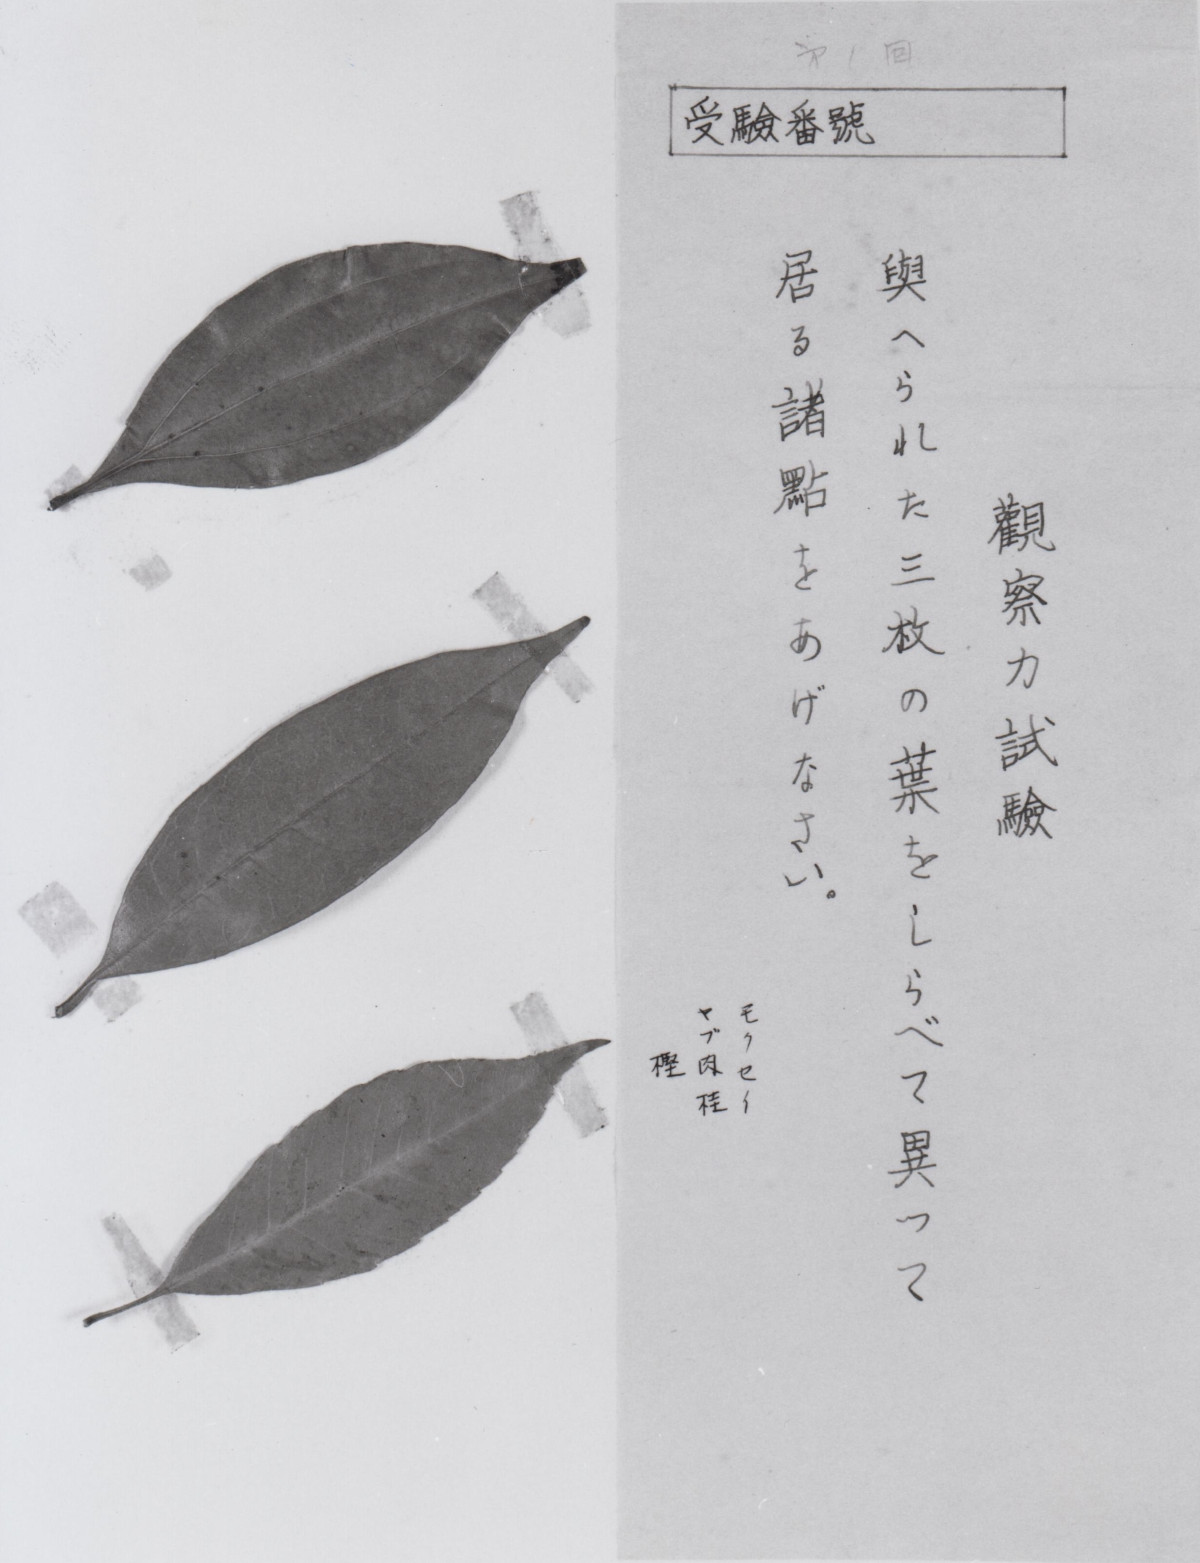 第1回
受験番號
觀察力試驗
與へられた三枚の葉をしらべて異つて
居る諸點をあげなさい。
モクセイ
ヤブ肉桂
樫